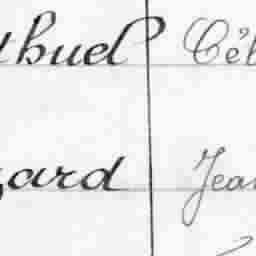 thuel Cél
zard Jean